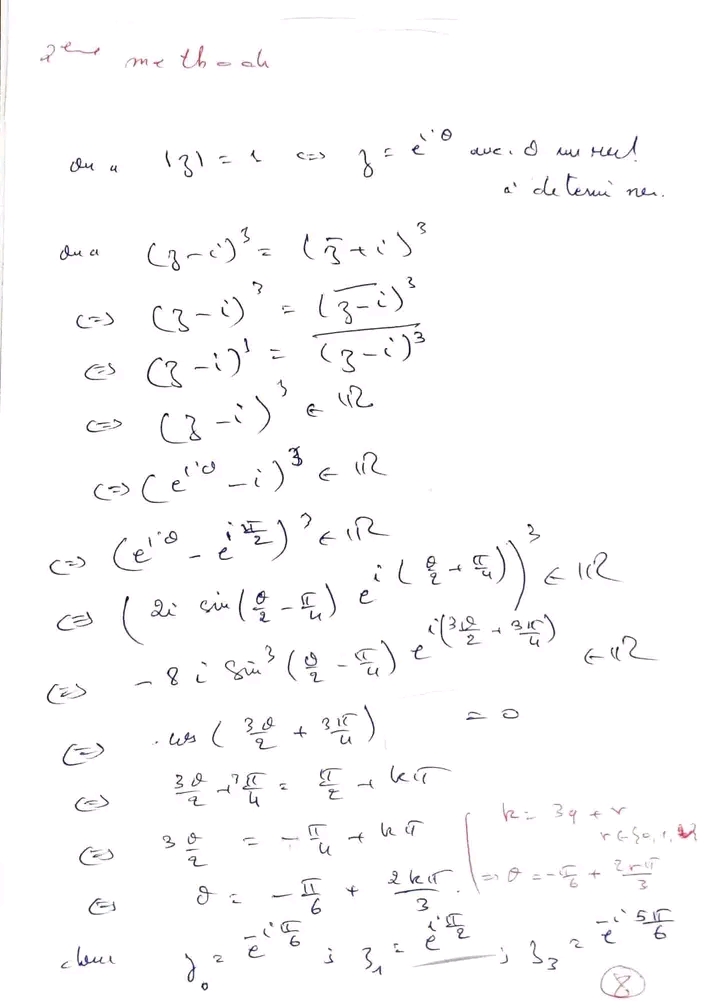 2ème method
On a |z| = 1 <=> z = e^{iθ} avec θ un réel
à determiner.
On a (z - i)^3 = (z̄ + i)^3
<=> (z - i)^3 = (\overline{z - i})^3
<=> (z - i)^3 = \overline{(z - i)^3}
<=> (z - i)^3 ∈ ℝ
<=> (e^{iθ} - i)^3 ∈ ℝ
<=> (e^{iθ} - e^{iπ/2})^3 ∈ ℝ
<=> (2i sin(θ/2 - π/4) e^{i(θ/2 + π/4)})^3 ∈ ℝ
<=> -8 i sin^3(θ/2 - π/4) e^{i(3θ/2 + 3π/4)} ∈ ℝ
<=> cos(3θ/2 + 3π/4) = 0
<=> 3θ/2 + 3π/4 = π/2 + kπ
<=> 3θ/2 = -π/4 + kπ
<=> θ = -π/6 + 2kπ/3.
k = 3q + r
r ∈ {0, 1, 2}
=> θ = -π/6 + 2rπ/3
donc z_0 = e^{-iπ/6} ; z_1 = e^{iπ/2} ; z_3 = e^{-i5π/6}
8